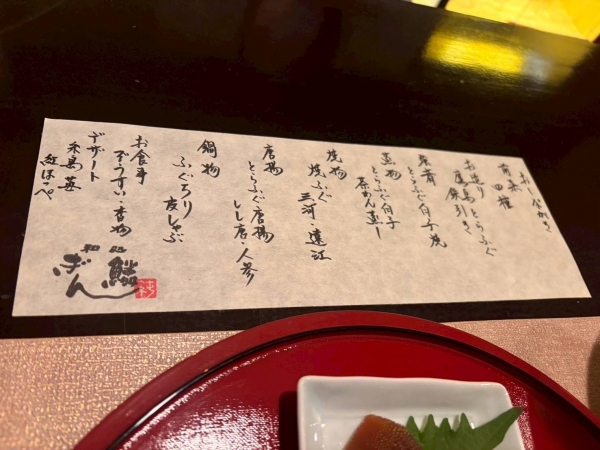 おしながき
前菜 四種
お造り とらふぐ
鹿島 鉄引き
とらふぐ白子焼
蒸物 とらふぐ白子
茶めん蒸し
焼物
焼ふぐ
三河・遠江
唐揚
とらふぐ唐揚
しし唐・人参
鍋物
ふぐちり
友しゃぶ
お食事
ぞうすい・香物
デザート
紅ほっぺ
和処
鱗
ぎん